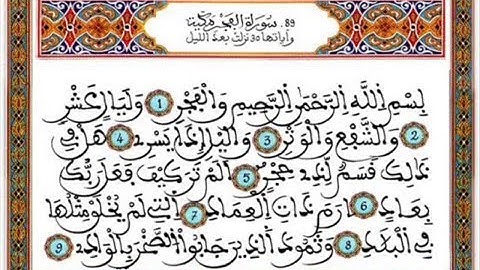 89 سورة الفجر مكية
وآياتها 30 نزلت بعد الليل
بِسْمِ اللَّهِ الرَّحْمَٰنِ الرَّحِيمِ وَالْفَجْرِ 1 وَلَيَالٍ عَشْرٍ
2 وَالشَّفْعِ وَالْوَتْرِ 3 وَاليْلِ إِذَا يَسْرِ 4 هَلْ فِي
ذَٰلِكَ قَسَمٌ لِّذِي حِجْرٍ 5 أَلَمْ تَرَ كَيْفَ فَعَلَ رَبُّكَ
بِعَادٍ 6 إِرَمَ ذَاتِ الْعِمَادِ 7 الَّتِي لَمْ يُخْلَقْ مِثْلُهَا
فِي الْبِلَادِ 8 وَثَمُودَ الَّذِينَ جَابُوا الصَّخْرَ بِالْوَادِ 9